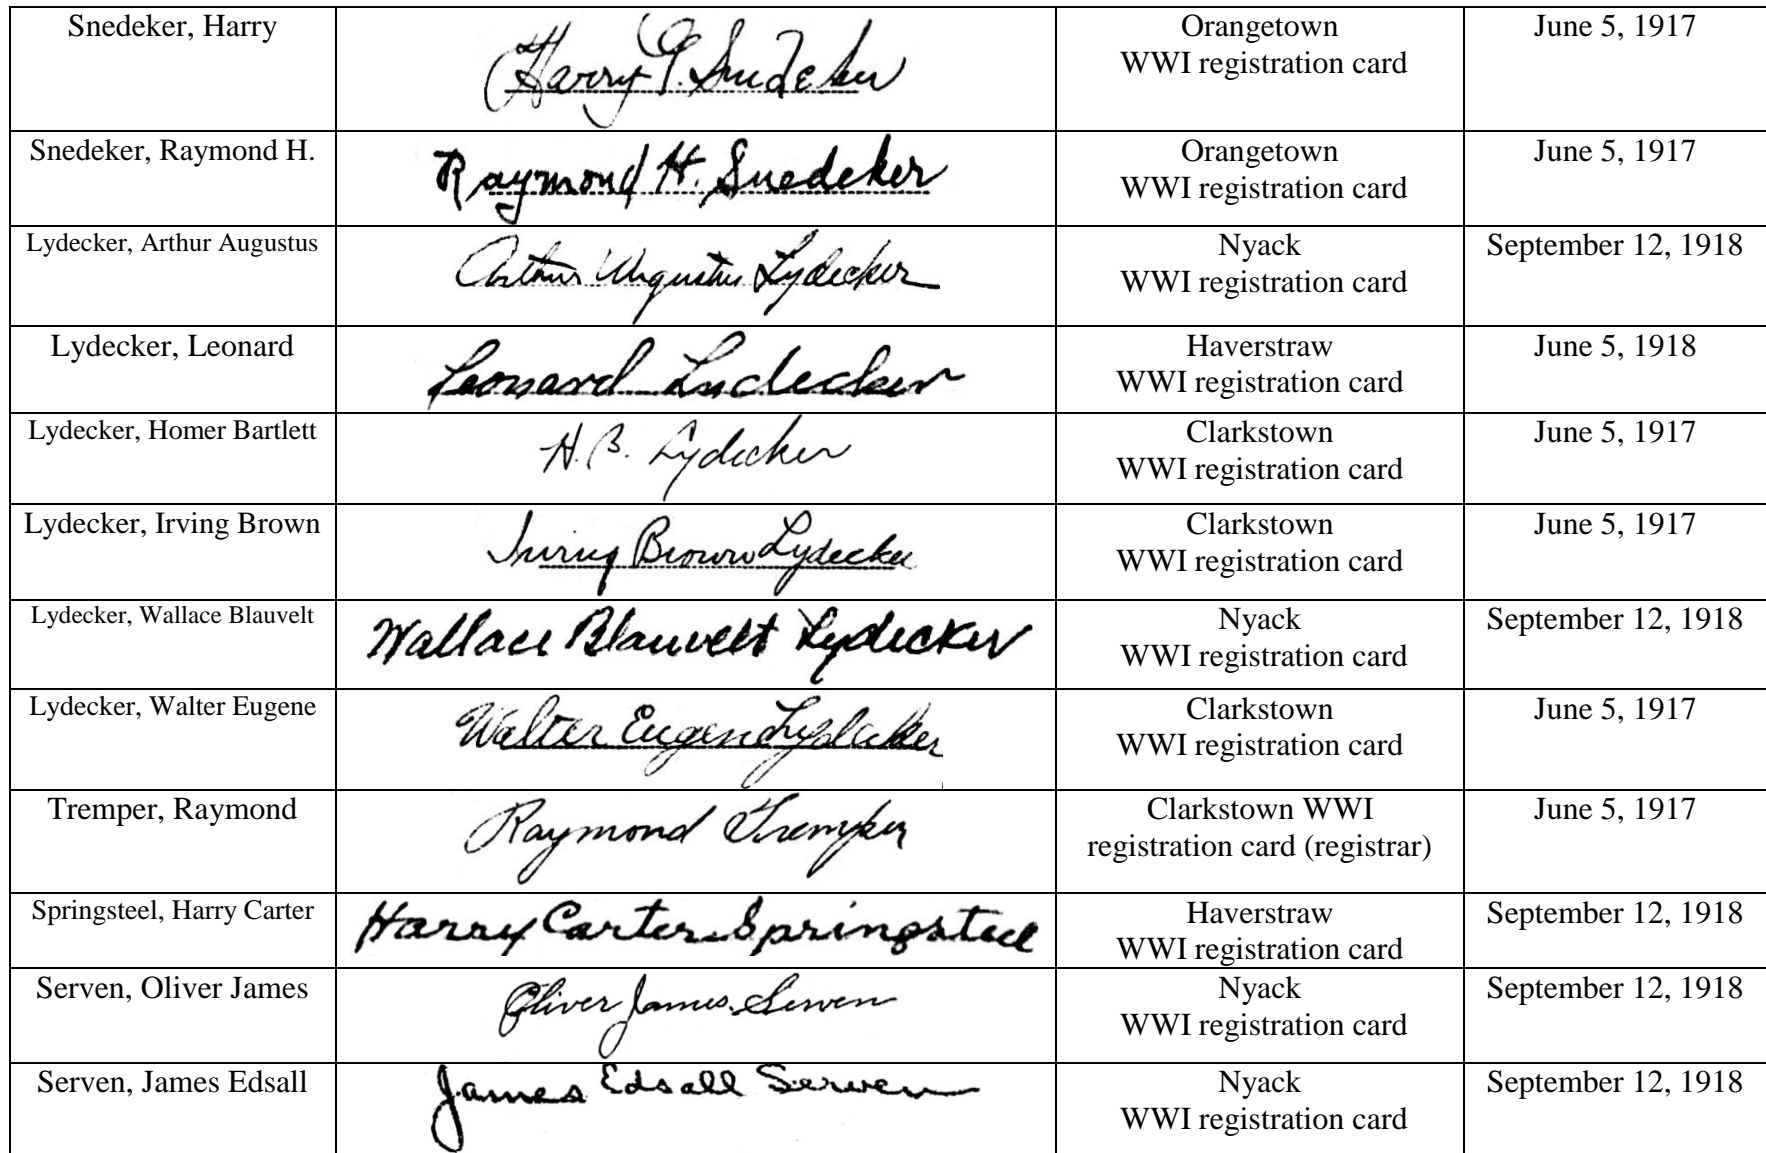 Snedeker, Harry
Harry G. Snedeker
Orangetown
WWI registration card
June 5, 1917
Snedeker, Raymond H.
Raymond H. Snedeker
Orangetown
WWI registration card
June 5, 1917
Lydecker, Arthur Augustus
Arthur Augustus Lydecker
Nyack
WWI registration card
September 12, 1918
Lydecker, Leonard
Leonard Lydecker
Haverstraw
WWI registration card
June 5, 1918
Lydecker, Homer Bartlett
H. B. Lydecker
Clarkstown
WWI registration card
June 5, 1917
Lydecker, Irving Brown
Irving Brown Lydecker
Clarkstown
WWI registration card
June 5, 1917
Lydecker, Wallace Blauvelt
Wallace Blauvelt Lydecker
Nyack
WWI registration card
September 12, 1918
Lydecker, Walter Eugene
Walter Eugene Lydecker
Clarkstown
WWI registration card
June 5, 1917
Tremper, Raymond
Raymond Tremper
Clarkstown WWI
registration card (registrar)
June 5, 1917
Springsteel, Harry Carter
Harry Carter Springsteel
Haverstraw
WWI registration card
September 12, 1918
Serven, Oliver James
Oliver James Serven
Nyack
WWI registration card
September 12, 1918
Serven, James Edsall
James Edsall Serven
Nyack
WWI registration card
September 12, 1918